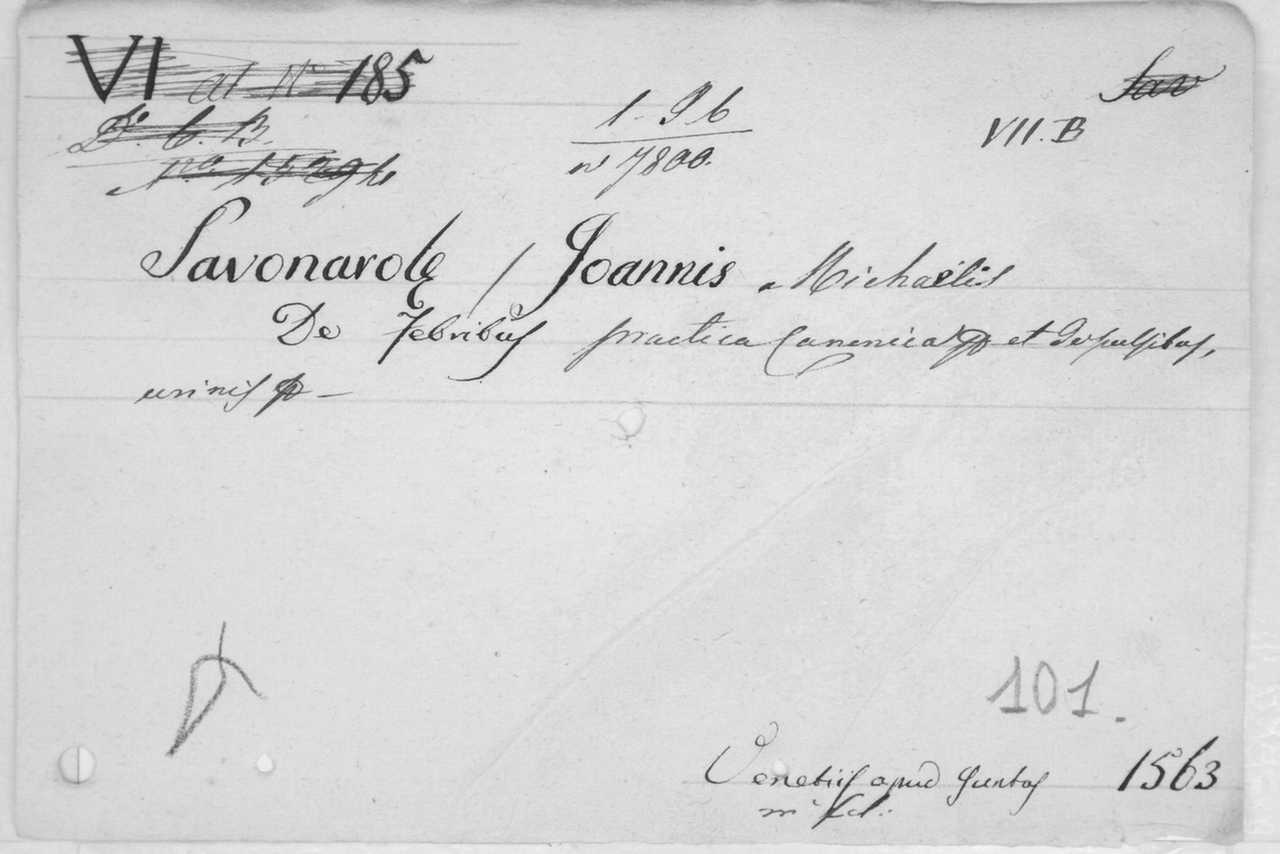 VI at N 185
Sav
1-96
VII. B
D. 6. B.
n 7800.
Savonarolę / Joannis Michaëlis
De Febribus practica Canonica et De pulsibus,
urinis
101.
Venetiis apud Juntas 1563
in fol: